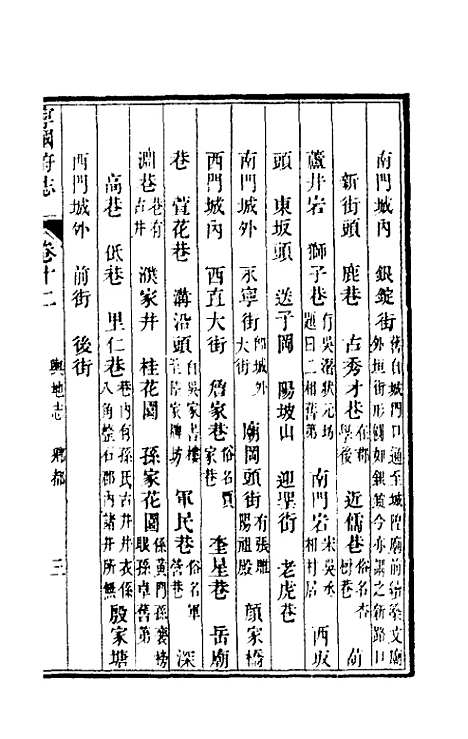 南門城內 銀錠街 舊自城門口通至城隍廟前繞梁文廟外垣街形觸如銀錠今亦謂之新路口
新街頭 鹿巷 古秀才巷 在郡學後 近儒巷 俗名杏樹巷 葫
蘆井岩 獅子巷 有吳潛狀元坊題曰二相舊第 南門岩 宋吳丞相村居 西坂
頭 東坂頭 送子岡 陽坡山 迎聖街 老虎巷
南門城外 永寧街 即城外大街 廟岡頭街 有張睢陽祖殿 顔家橋
西門城內 西直大街 詹家巷 俗名賈家巷 奎星巷 岳廟
巷 萱花巷 溝沿頭 自吳家書樓至陸家牌坊 軍民巷 俗名軍營巷 深
淵巷 巷有古井 濮家井 桂花園 孫家花園 係黃門孫襄榜眼孫卓舊第
高巷 低巷 里仁巷 巷內有孫氏古井井衣係八角整石郡內諸井所無 殷家塘
西門城外 前街 後街
寧國府志 卷十二 輿地志 鄉都 三